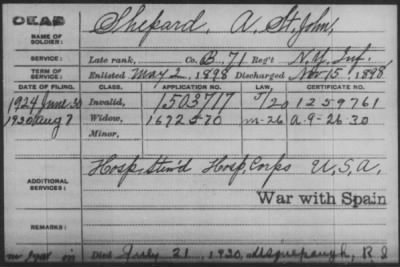 DEAD
NAME OF SOLDIER: Shepard, A. St. John,
SERVICE: Late rank, Co. B. 71 Reg't N.Y. Inf.
TERM OF SERVICE: Enlisted May 2, 1898 Discharged Nov 15, 1898
DATE OF FILING. CLASS. APPLICATION NO. LAW. CERTIFICATE NO.
1924 June 30 Invalid, 1503717 J/20 1259761
1930 Aug 7 Widow, 1672570 m-26 a.9-26-30
Minor,
ADDITIONAL SERVICES: Hosp. Stew'd Hosp. Corps U.S.A.
War with Spain
REMARKS:
Died July 21, 1930, Usquepaugh, R I